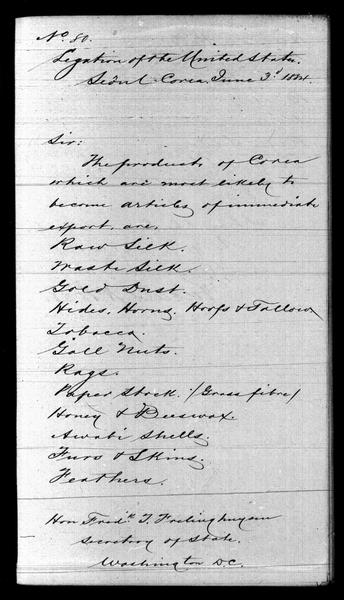 No. 80.
Legation of the United States.
Seöul Corea. June 3d 1884.
Sir:
The products of Corea
which are most likely to
become articles of immediate
export, are,
Raw Silk.
Waste Silk.
Gold Dust.
Hides, Horns, Hoofs & Tallow
Tobacco.
Gall Nuts.
Rags.
Paper Stock. (Grass fibre)
Honey & Beeswax.
Awabi Shells.
Furs & Skins.
Feathers.
Hon Fredk. T. Frelinghuysen
Secretary of State.
Washington D.C.